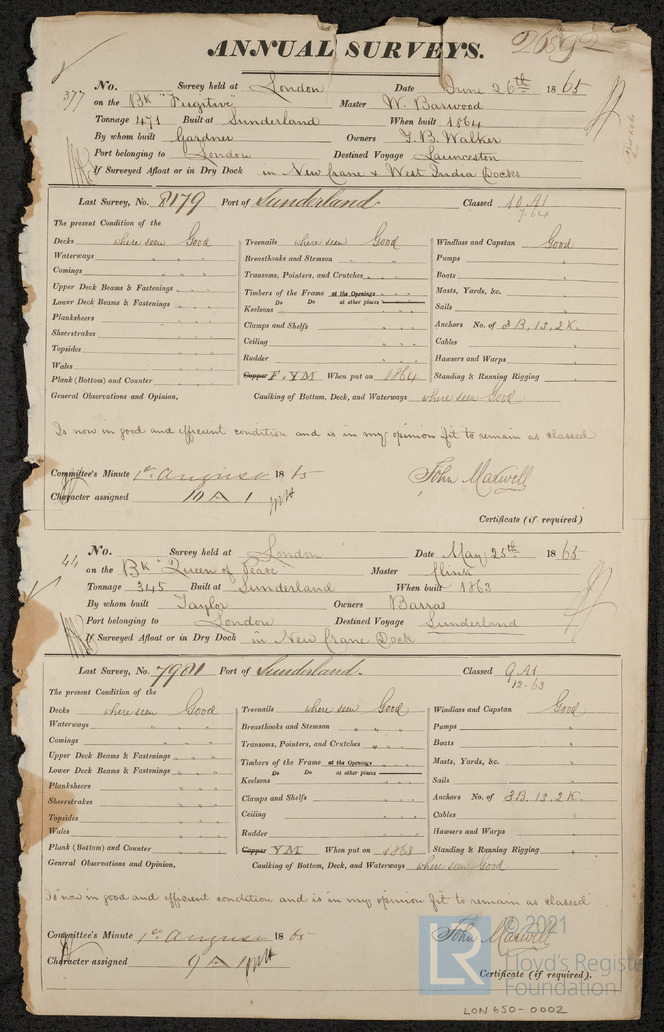 ANNUAL SURVEYS.
26592
377
No. Survey held at London Date June 26th 1865
on the Bk "Fugitive" Master W. Barwood
Tonnage 471 Built at Sunderland When built 1864
By whom built Gardner Owners T. B. Walker
Port belonging to London Destined Voyage Launceston
If Surveyed Afloat or in Dry Dock in New Crane & West India Docks
Last Survey, No. 8179 Port of Sunderland. Classed 10 A1
7.64
The present Condition of the
Decks where seen Good Treenails where seen Good Windlass and Capstan Good
Waterways " " " Breasthooks and Stemson " " " Pumps "
Comings " " " Transoms, Pointers, and Crutches " " " Boats "
Upper Deck Beams & Fastenings " " " Timbers of the Frame at the Openings " " " Masts, Yards, &c. "
Do Do at other places
Lower Deck Beams & Fastenings " " " Keelsons " " " Sails "
Planksheers " " " Clamps and Shelfs " " " Anchors No. of 3B, 1S, 2K.
Sheerstrakes " " " Ceiling " " " Cables "
Topsides " " " Rudder " " " Hawsers and Warps "
Wales " " "
Plank (Bottom) and Counter " " " Copper F. YM When put on 1864 Standing & Running Rigging "
General Observations and Opinion, Caulking of Bottom, Deck, and Waterways where seen Good
Is now in good and efficient condition and is in my opinion fit to remain as classed
Committee's Minute 1st August 1865 John Maxwell
Character assigned 10 A 1
Certificate (if required)
44
No. Survey held at London Date May 25th 1865
on the Bk "Queen of Peace" Master Hink
Tonnage 345 Built at Sunderland When built 1863
By whom built Taylor Owners Barra
Port belonging to London Destined Voyage Sunderland
If Surveyed Afloat or in Dry Dock in New Crane Dock
Last Survey, No. 7981 Port of Sunderland. Classed 9 A1
12-63
The present Condition of the
Decks where seen Good Treenails where seen Good Windlass and Capstan Good
Waterways " " " Breasthooks and Stemson " " " Pumps "
Comings " " " Transoms, Pointers, and Crutches " " " Boats "
Upper Deck Beams & Fastenings " " " Timbers of the Frame at the Openings " " " Masts, Yards, &c. "
Do Do at other places
Lower Deck Beams & Fastenings " " " Keelsons " " " Sails "
Planksheers " " " Clamps and Shelfs " " " Anchors No. of 3B, 1S, 2K.
Sheerstrakes " " " Ceiling " " " Cables "
Topsides " " " Rudder " " " Hawsers and Warps "
Wales " " "
Plank (Bottom) and Counter " " " Copper YM When put on 1863 Standing & Running Rigging "
General Observations and Opinion, Caulking of Bottom, Deck, and Waterways where seen Good
Is now in good and efficient condition and is in my opinion fit to remain as classed
Committee's Minute 1st August 1865 John Maxwell
Character assigned 9 A 1
Certificate (if required).
LR
© 2021
Lloyd's Register
Foundation
LON650-0002